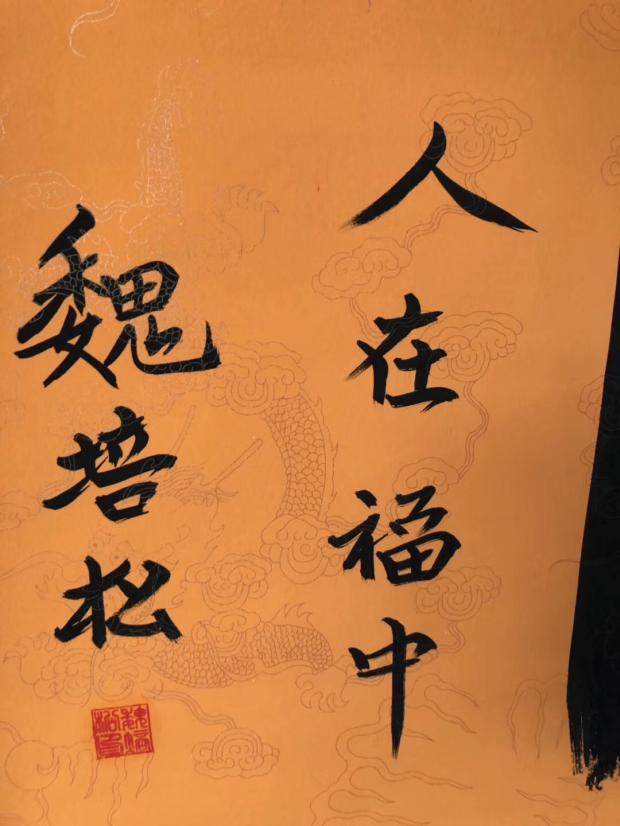 人在福中
魏培松